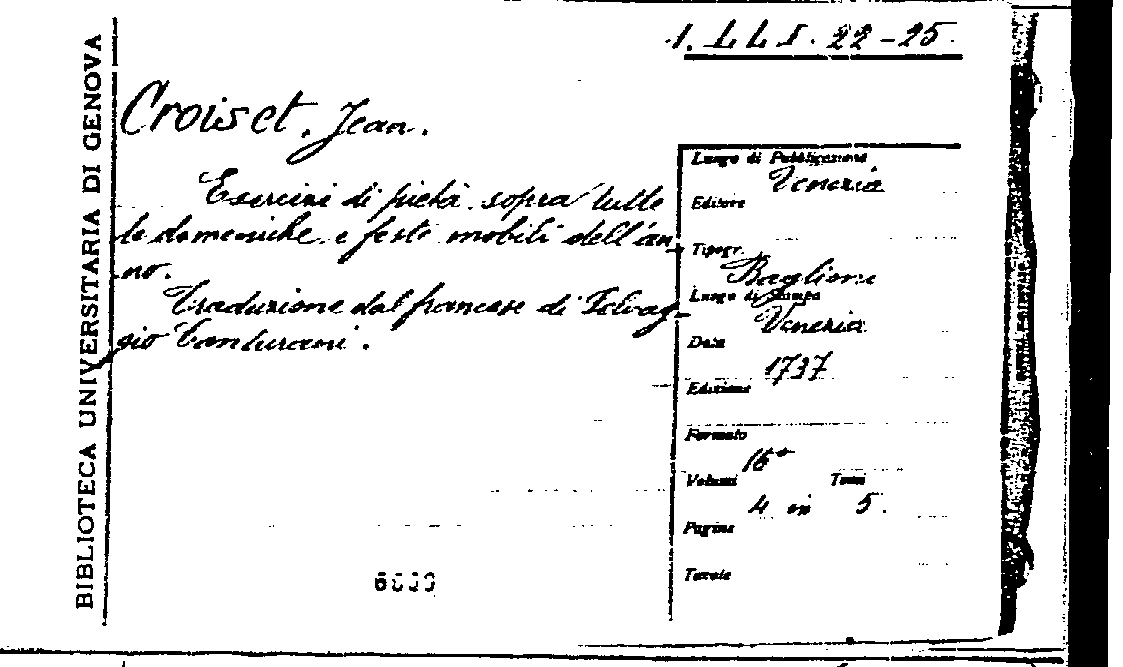 1. L L I. 22-25.
BIBLIOTECA UNIVERSITARIA DI GENOVA
Croiset, Jean.
Esercizi di pietà sopra tutte
le domeniche e feste mobili dell'an-
no.
Traduzione dal francese di Selvag-
gio Canturani.
Luogo di Pubblicazione
Venezia
Editore
Tipogr.
Baglioni
Luogo di Stampa
Venezia
Data
1737
Edizione
Formato
16°
Volumi Tomi
4 in 5.
Pagine
Tavole